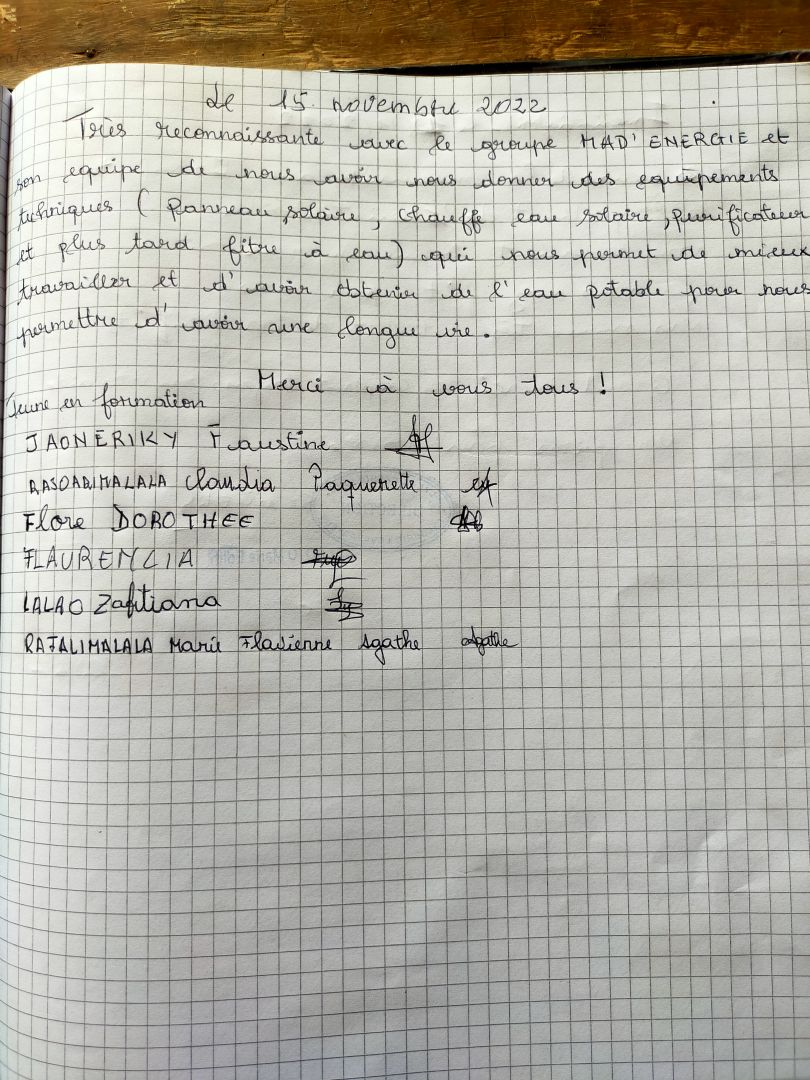 Le 15 novembre 2022
Très reconnaissante avec le groupe MAD'ENERGIE et
son equipe de nous avoir nous donner des equipements
techniques ( Panneau solaire, chauffe eau solaire, purificateur
et plus tard fitre à eau) qui nous permet de mieux
travailler et d'avoir obtenir de l'eau potable pour nous
permettre d'avoir une longue vie.
Merci à vous tous !
Jeune en formation
JAONERIKY Faustine
RASOARIMALALA Claudia Paquerette
Flore DOROTHEE
FLAURENCIA
LALAO Zafitiana
RAFALIMALALA Marie Flavienne Agathe agathe